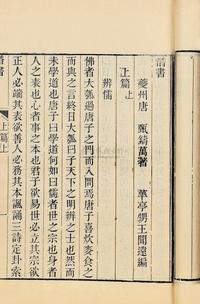 潛書
上篇上
夔州唐 甄鑄萬著 華亭甥王聞遠編
辨儒
佛者大瓠過唐子之門而入問焉唐子喜炊麥食之
而與之言終日大瓠曰子天下之明辨之士也然而
未學道也唐子曰學道何如曰儒者世之宗也身者
人之表也心者事之本也君子欲易世必立其宗欲
正人必端其表欲善人必務其本諷誦三詩定卦索
潛書
上篇上